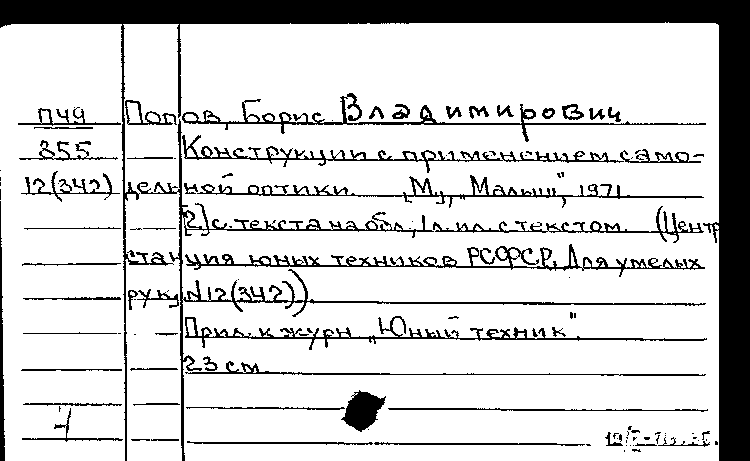 П49 Попов, Борис Владимирович.
355 Конструкции с применением само-
12(342) дельной оптики. [М.], „Малыш", 1971.
[2] с. текста на обл., 1 л. ил. с текстом. (Центр.
станция юных техников РСФСР. Для умелых
рук, №12(342)).
Прил. к журн „Юный техник".
23 см.